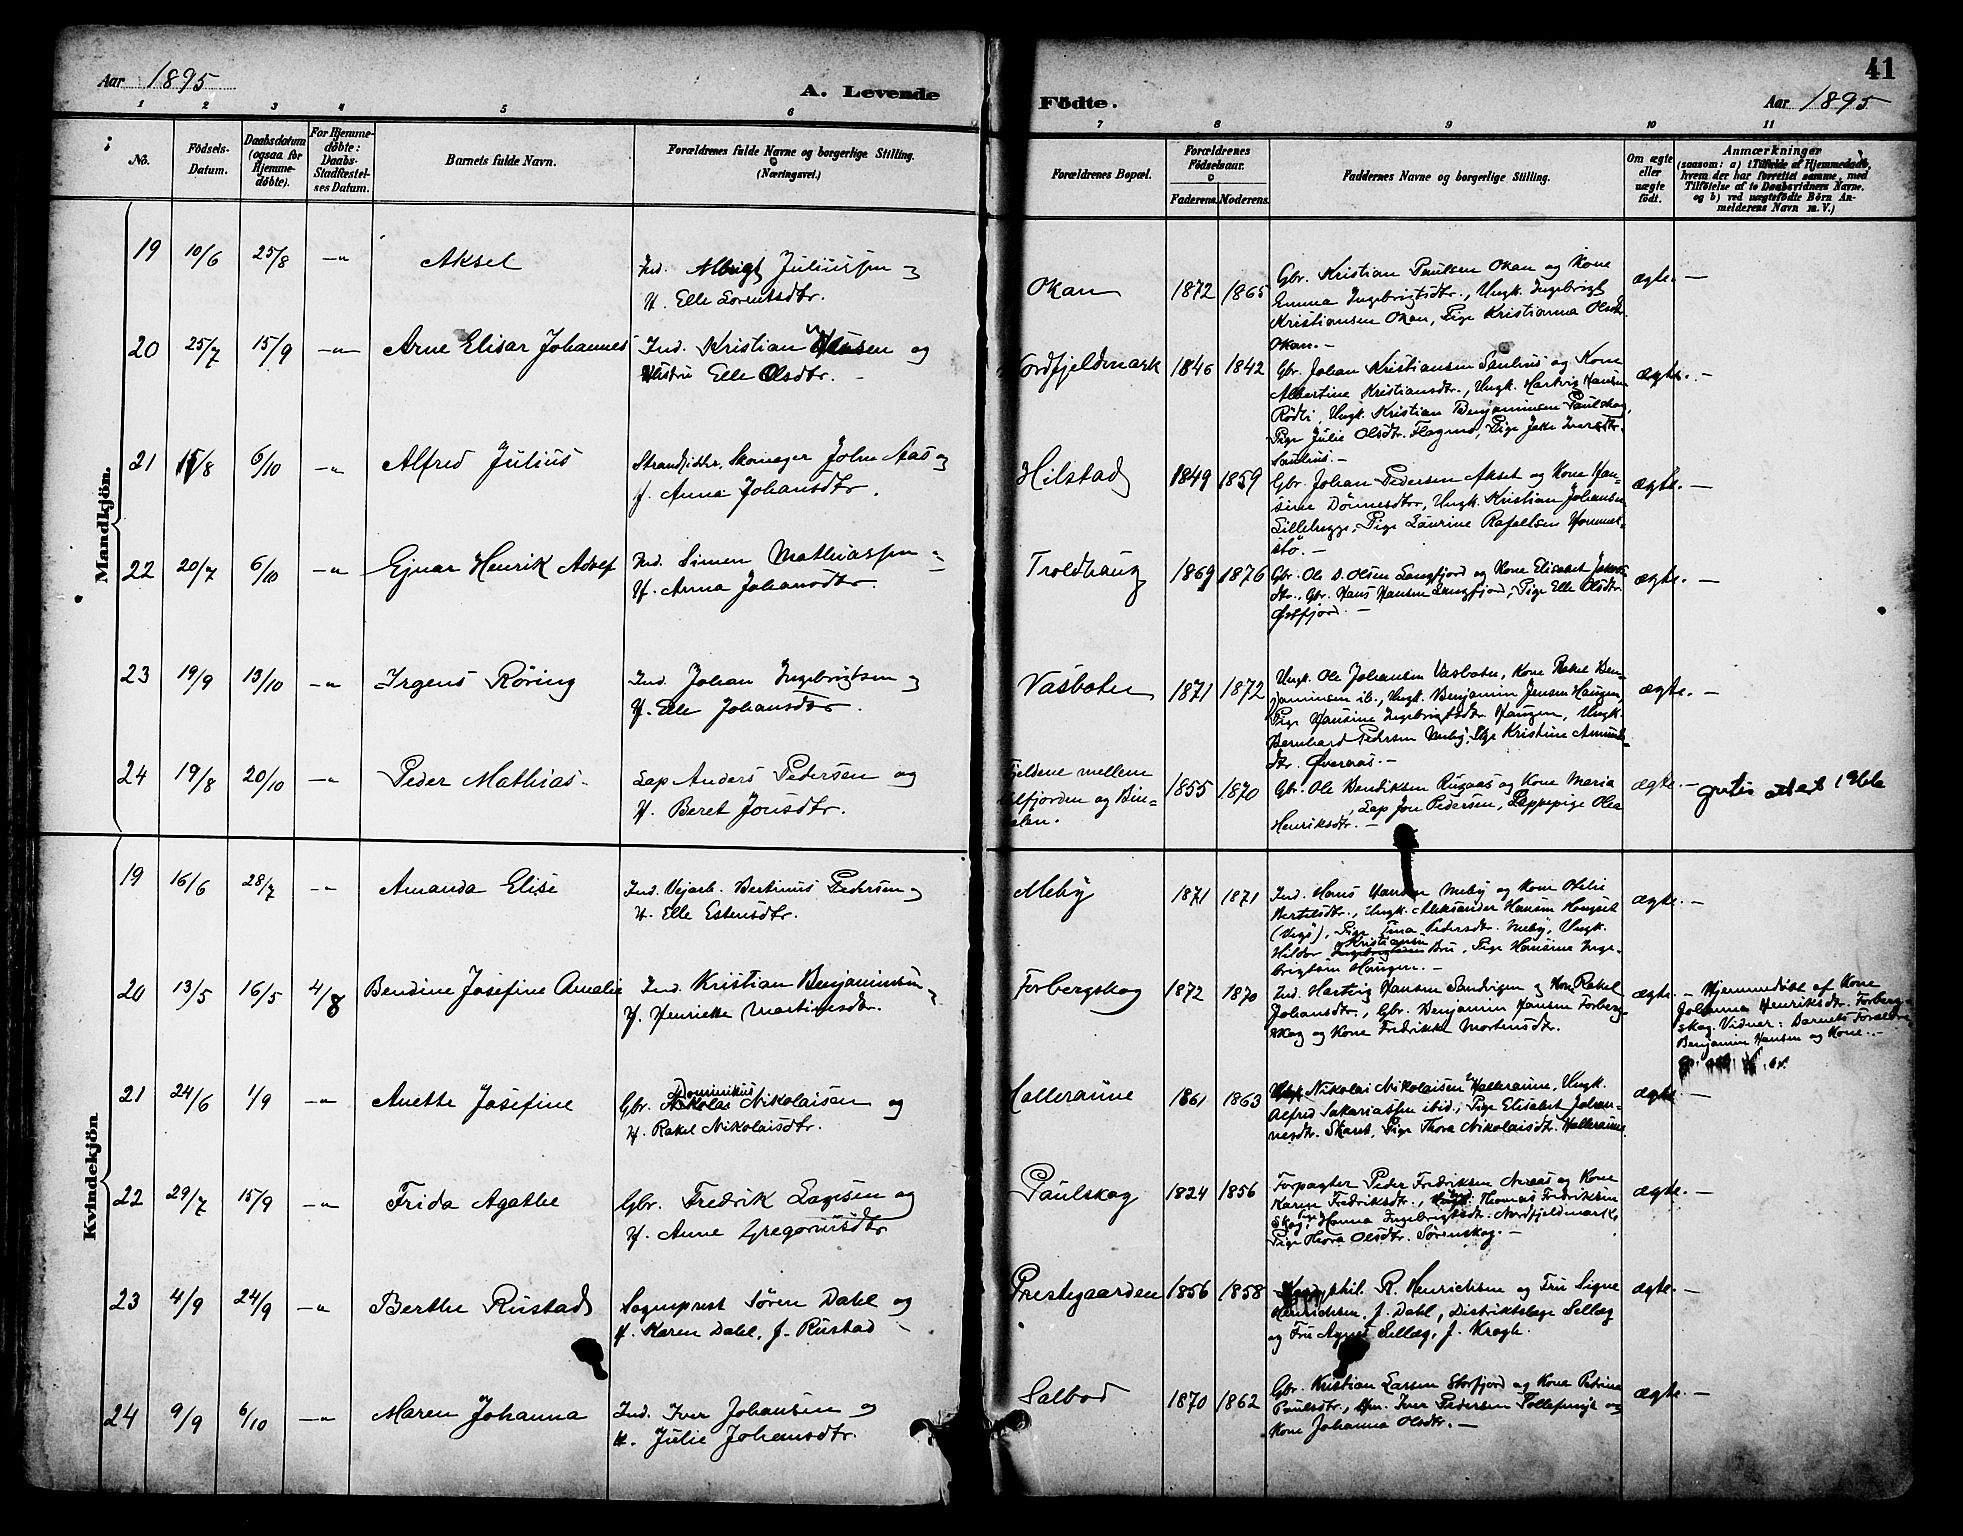 Aar 1895
A. Levende
Födte.
Aar 1895
41
1 2 3 4 5 6 7 8 9 10 11
No.
Födsels-
Datum.
Daabsdatum
(ogsaa for
Hjemme-
döbte).
For Hjemme-
döbte:
Daabs-
Stadfæstel-
ses Datum.
Barnets fulde Navn.
Forældrenes fulde Navne og borgerlige Stilling.
(Næringsvei.)
Forældrenes Bopæl.
Forældrenes
Födselsaar.
Faderens. Moderens.
Faddernes Navne og borgerlige Stilling.
Om ægte
eller
uægte
födt.
Anmærkninger
(saasom: a) i Tilfælde af Hjemmedaab,
hvem der har forrettet samme, med
Tilföielse af to Daabsvidners Navne.
og b) ved uægtefödte Börn An-
melderens Navn m. V.)
Mandkjön.
19 10/6 25/8 -"- Aksel
Ind. Albrigt Juliussen og
H. Elle Lorentsdtr.
Okan 1872 1865
Gbr. Kristian Paulsen Okan og Kone
Emma Ingebrigtsdtr., Ungk. Ingebrigt
Kristiansen Okan, Pige Kristianna Olsdtr.
Okan.-
ægte. -
20 25/7 15/9 -"- Arne Elisar Johannes
Ind. Kristian Hansen og
Hustru Elle Olsdtr. -
Nordfjeldmark 1846 1842
Gbr. Johan Kristiansen Saulhus og Kone
Albertine Kristiansdtr., Ungk. Hartvig Hansen
Rødli, Ungk. Kristian Benjaminsen Paulskog,
Pige Julie Olsdtr. Flagmo, Pige Jakke Iversdtr.
Saulhus.-
ægte. -
21 15/8 6/10 -"- Alfred Julius
Strandsidder, Skomager John Aas og
H. Anna Johansdtr.
Hilstad 1849 1859
Gbr. Johan Pedersen Akset og Kone Han-
sine Dønnesdtr, Ungk. Kristian Johansen
Lillebugge, Pige Laurine Rafaelsen Hommel-
stø. -
ægte. -
22 20/7 6/10 -"- Ejnar Henrik Adolf
Ind. Simen Mathiassen og
H. Anna Johansdtr.
Troldhaug 1869 1876
Gbr. Ole D. Olsen Langfjord og Kone Elisabet Jakobs-
dtr., Gbr. Hans Hansen Langfjord, Pige Elle Olsdtr.
Østfjord. -
ægte. -
23 19/9 13/10 -"- Irgens Røring
Ind. Johan Ingebrigtsen og
H. Elle Johansdtr.
Vasboten 1871 1872
Ungk. Ole Johansen Vasboten, Kone Rakel Ben-
jaminsen ib., Ungk. Benjamin Jensen Haugen,
Pige Hansine Ingebrigtsdtr. Haugen, Ungk.
Bernhard Pedersen Meby, Pige Kristine Amund-
dtr. Øveraas.-
ægte. -
24 19/8 20/10 -"- Peder Mathias.
Lap Anders Pedersen og
H. Beret Jonsdtr.
Fjeldene mellem
fjorden og Bin-
dalen.
1855 1870
Gbr. Ole Bendiksen Rugaas og Kone Maria
, Lap Jon Pedersen, Lappepige Olea
Henriksdtr. -
ægte. -
Kvindekjön
19 16/6 28/7 -"- Amanda Elise
Ind. Vejarb. Bertinus Pedersen og
H. Elle Estensdtr.
Meby 1871 1871
Ind. Hans Hansen Meby og Kone Otelie
Bertelsdtr., Ungk. Aleksander Hansen Hongset
(Vegø), Pige Tina Pedersdtr. Meby, Ungk.
Kristiansen
Hildor Ingebrigtsen Bru, Pige Hansine Inge-
brigtsen Haugen. -
ægte. -
20 13/5 16/5 4/8 Bendine Josefine Amalie
Ind. Kristian Benjaminsen og
H. Henrikke Martinusdtr.
Forbergskog 1872 1870
Ind. Hartvig Hansen Sandvigen og Kone Rakel
Johansdtr., Gbr. Benjamin Hansen Forberg-
skog og Kone Fredrikke Mortensdtr.
ægte. - Hjemmedøbt af Kone
Johanna Henriksdtr. Forberg-
skog. Vidner: Barnets Forældre
Benjamin Hansen og Kone. -
21 24/6 1/9 -"- Anette Josefine
Dominikus
Gbr. Nikolai Nikolaisen og
H. Rakel Nikolaisdtr.
Halleraune 1861 1863
Ungk. Nikolai Nikolaisen Halleraune, Ungk.
Alfred Sakariassen ibid., Pige Elisabet Johan-
nesdtr. Skaret, Pige Thora Nikolaisdtr. Halleraune.
ægte. -
22 29/7 15/9 -"- Frida Agathe
Gbr. Fredrik Larsen og
H. Anne Gregoriusdtr
Paulskog 1824 1856
Forpagter Peder Fredriksen Aunaas og Kone
Karen Fredriksdtr., Ungk. Thomas Fredriksen
Skog, Pige Hanna Ingebrigtsdtr. Nordfjeldmark,
Pige Thora Olsdtr. Sørenskog. -
ægte. -
23 4/9 24/9 -"- Berthe Rustad
Sogneprest Søren Dahl og
H. Karen Dahl, f. Rustad -
Prestegaarden 1856 1858
phil. R. Henrichsen og Fru Signe
Henrichsen, f. Dahl, Distriktslæge Sellæg
og Fru Agnes Sellæg, f. Krogh.
ægte. -
24 9/9 6/10 -"- Maren Johanna
Ind. Iver Johansen og
H. Julie Johansdtr.
Salbod 1870 1862
Gbr. Kristian Larsen Storfjord og Kone Petrine
Paulsdtr., Gbr. Iver Pedersen Tollefsvik og
Kone Johanna Olsdtr. -
ægte. -